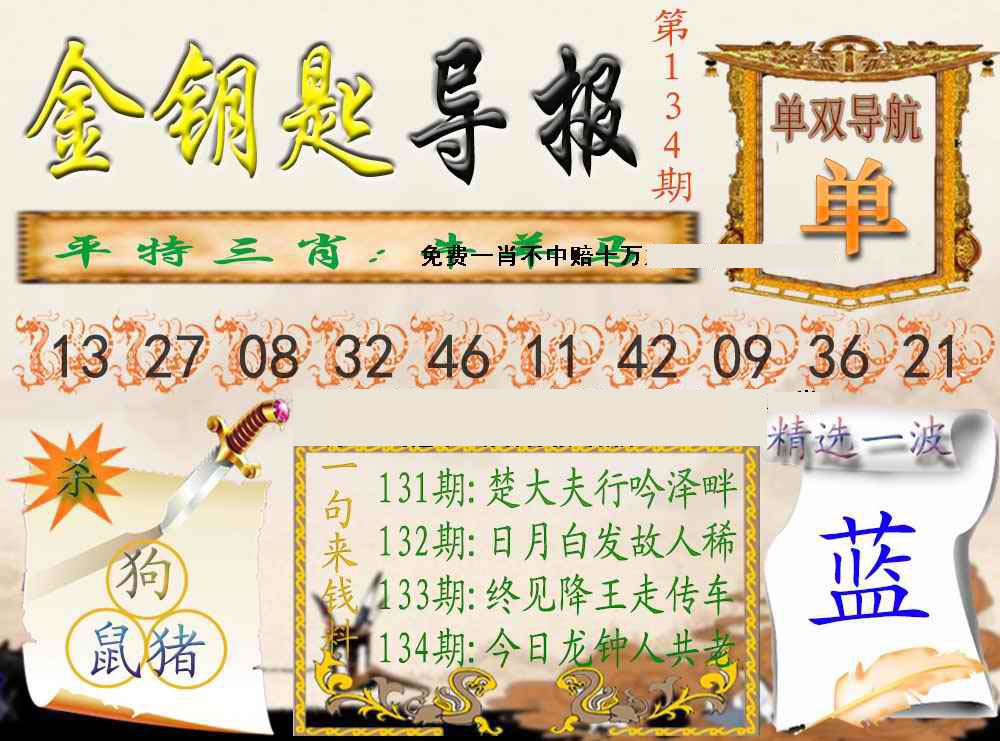 金钥匙导报
第134期
单双导航
单
平特三肖：牛羊马
免费一肖不中赔十万
13 27 08 32 46 11 42 09 36 21
杀
狗
鼠猪
一句来钱料
131期:楚大夫行吟泽畔
132期:日月白发故人稀
133期:终见降王走传车
134期:今日龙钟人共老
精选一波
蓝